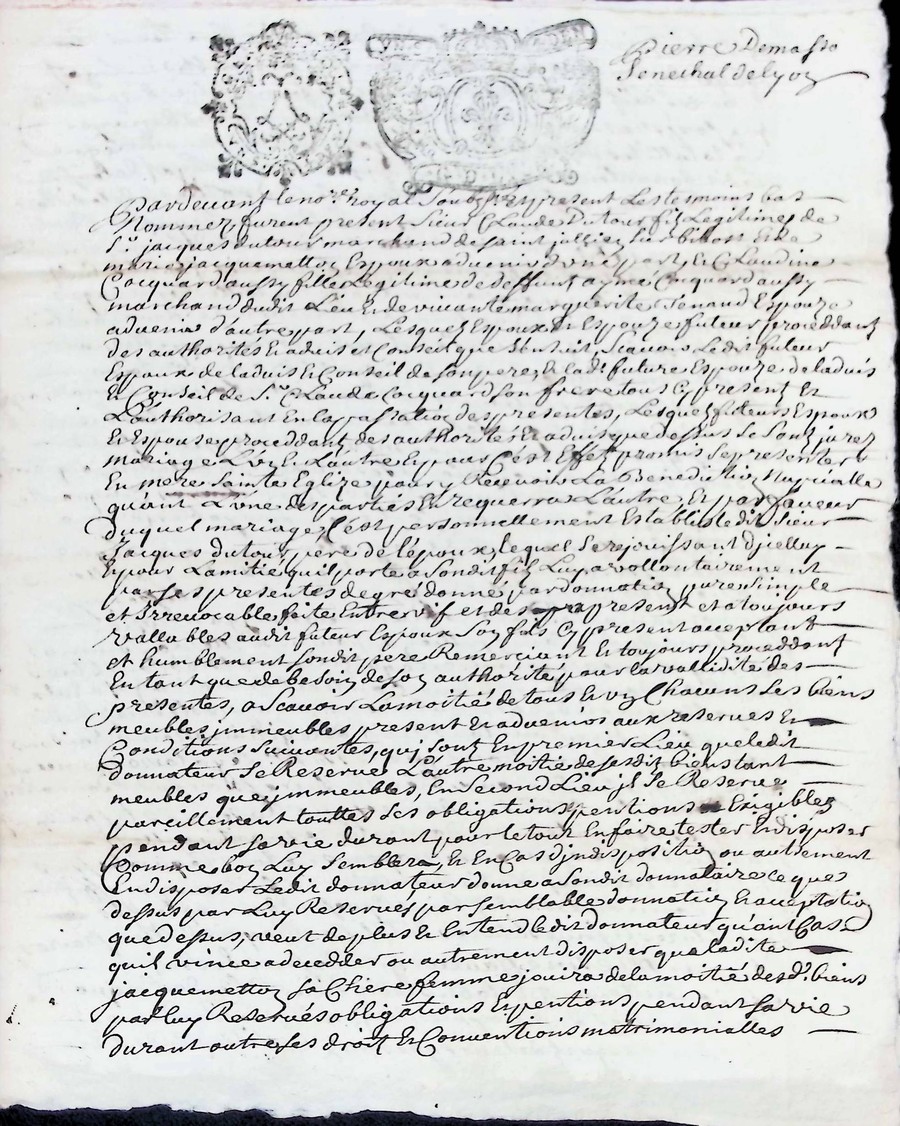 Pierre Demasso
Senechal de lyon
Pardevant le no.re royal Soubz.né Et present Les tesmoins bas
Nommez, furent present Sieur Claude Dutour fils Legitime de
S.r jacques dutour marchand de saint jullien sur bibost Et de
marie jacquemetton Espoux advenir d'une part, Et Claudine
Cocquard aussy fille Legitime de deffunt aymé Cocquard aussy
marchand dudit Lieu Et de vivante marguerite Espouze
advenir d'autre part, Lesquels Espoux Et Espouze futeur proceddant
des authorités Et advis et Conseil que s'ensuit, Scavoir Ledit futeur
Espoux de ladvis Et Conseil de son pere, Et ladi future Espouze de ladvis
Et Conseil de S.r Claude Cocquard son frere tous Cy present Et
L'authorisant En la passation des presentes, Lesquels futeurs Espoux
Et Espouse proceddant des authorités Et advis que dessus Se sont jurez
mariage L'un L'autre Et pour C'est Effet promis se presenter
En mere Sainte Eglize pour y Recevoir La Benediction Nuptialle
quant L'une des parties En requerra L'autre, Et par faveur
duquel mariage, C'est personnellement Establis ledit Sieur
Jacques dutour pere de l'époux, lequel se rejouissant d'icelluy
Et pour Lamitié quil porte a Sondit fils Luy a vollontairement
par ses presentes de gré donné par donnation pure Simple
et Irrevocable faite Entre vif et des present et a toujours
vallables audit futeur Espoux Son fils Cy present acceptant
et humblement sondit pere Remerciant Et toujours proceddant
En tant que de besoin de son authorité pour la vallidité des
presentes, a Scavoir La moitié de tous Et un Chacuns Ses biens
meubles jmmeubles present Et advenir aux reserves Et
Conditions Suivantes, qui sont En premier Lieu que ledit
donnateur Se Reserve L'autre moitié de sesdit biens tant
meubles que jmmeubles, En Second Lieu jl Se Reserve
pareillement touttes Ses obligations pentions Exigibles
pendant sa vie durant pour le tout En faire tester Et disposer
Comme bon Luy Semblera, Et En Cas d'jndisposition ou autrement
En disposer Ledit donnateur donne a Sondit donnataire ce que
dessus par Luy Reservés par semblable donnation Et acceptation
que dessus, veut de plus Et Entend ledit donnateur qu'ant Cas
quil vince a decedder ou autrement disposer que ladite
jacquemetton sa Chere femme jouira de la moitié desd. biens
par luy Reservés obligations Et pentions pendant sa vie
durant outre Ses droit Et Conventions matrimonialles